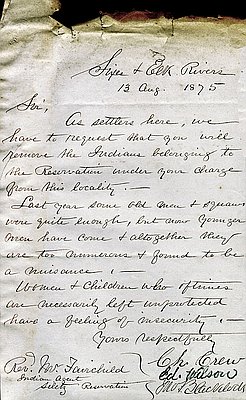 Sixes & Elk Rivers
13 Aug. 1875
Sir,
As settlers here, we
have to request that you will
remove the Indians belonging to
the Reservation under your charge
from this locality. —
Last year some old men & squaws
were quite enough, but now younger
men have come & altogether they
are too numerous & found to be
a nuisance. —
Women & Children who oftimes
are necessarily left unprotected
have a feeling of insecurity. —
Yours respectfully
Rev. Mr. Fairchild
Indian Agent
Siletz Reservation
Crew
Ed. Mason